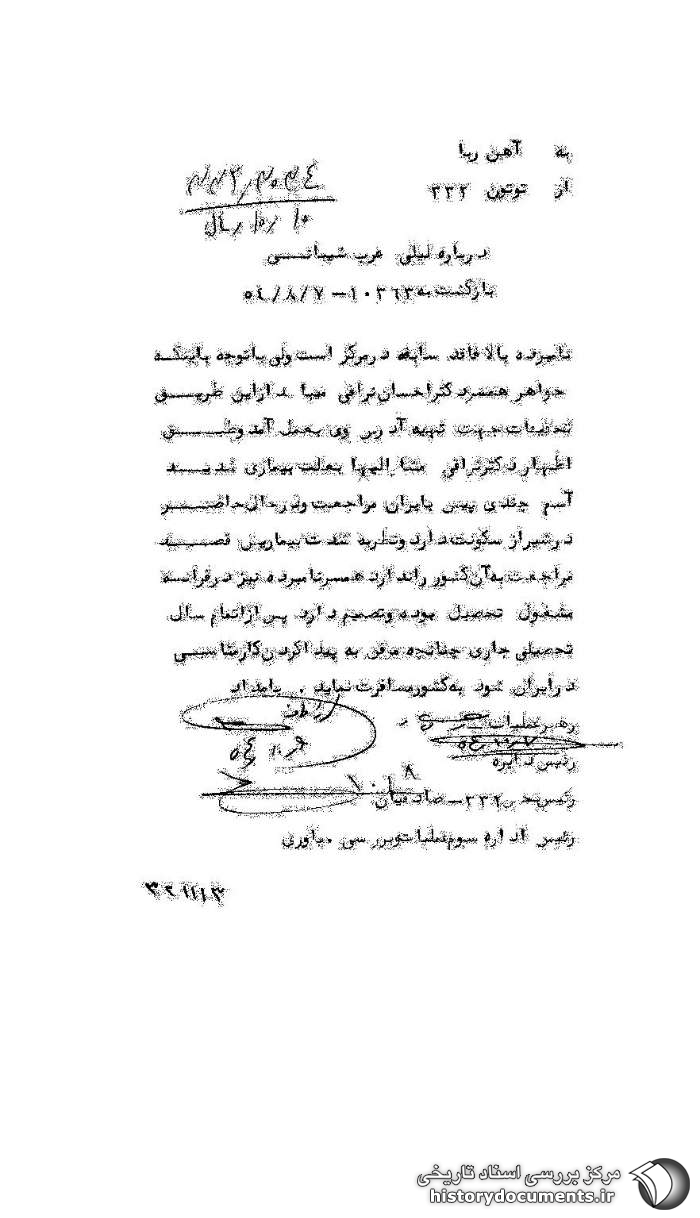 به آهن ربا
از توتون ۳۳۲
درباره لیلی عرب شیبانی
بازگشت به ۱۰۳۶۳ – ۵۴/۸/۷
نامبرده بالا فاقد سابقه در مرکز است ولی باتوجه باینکه
خواهر همسر دکتر احسان نراقی میباشد ازاین طریق
تحقیقات جهت تهیه آدرس وی بعمل آمد وطبق
اظهار دکتر نراقی مشارالیها بعلت بیماری شدید
آسم چندی پیش بایران مراجعت ودرحال حاضر
درشیراز سکونت دارد ونظربه شدت بیماریش قصد
مراجعت به آن کشور را ندارد همسرنامبرده نیز درفرانسه
مشغول تحصیل بوده وتصمیم دارد پس ازاتمام سال
تحصیلی جاری چنانچه موفق به پیدا کردن کار مناسبی
درایران شود به کشور مسافرت نماید . بامداد
رهبر عملیات
رئیس دایره
رئیس بخش ۳۳۲ – صادقیان
رئیس اداره سوم عملیات وبررسی . یاوری
مرکز بررسی اسناد تاریخی
historydocuments.ir